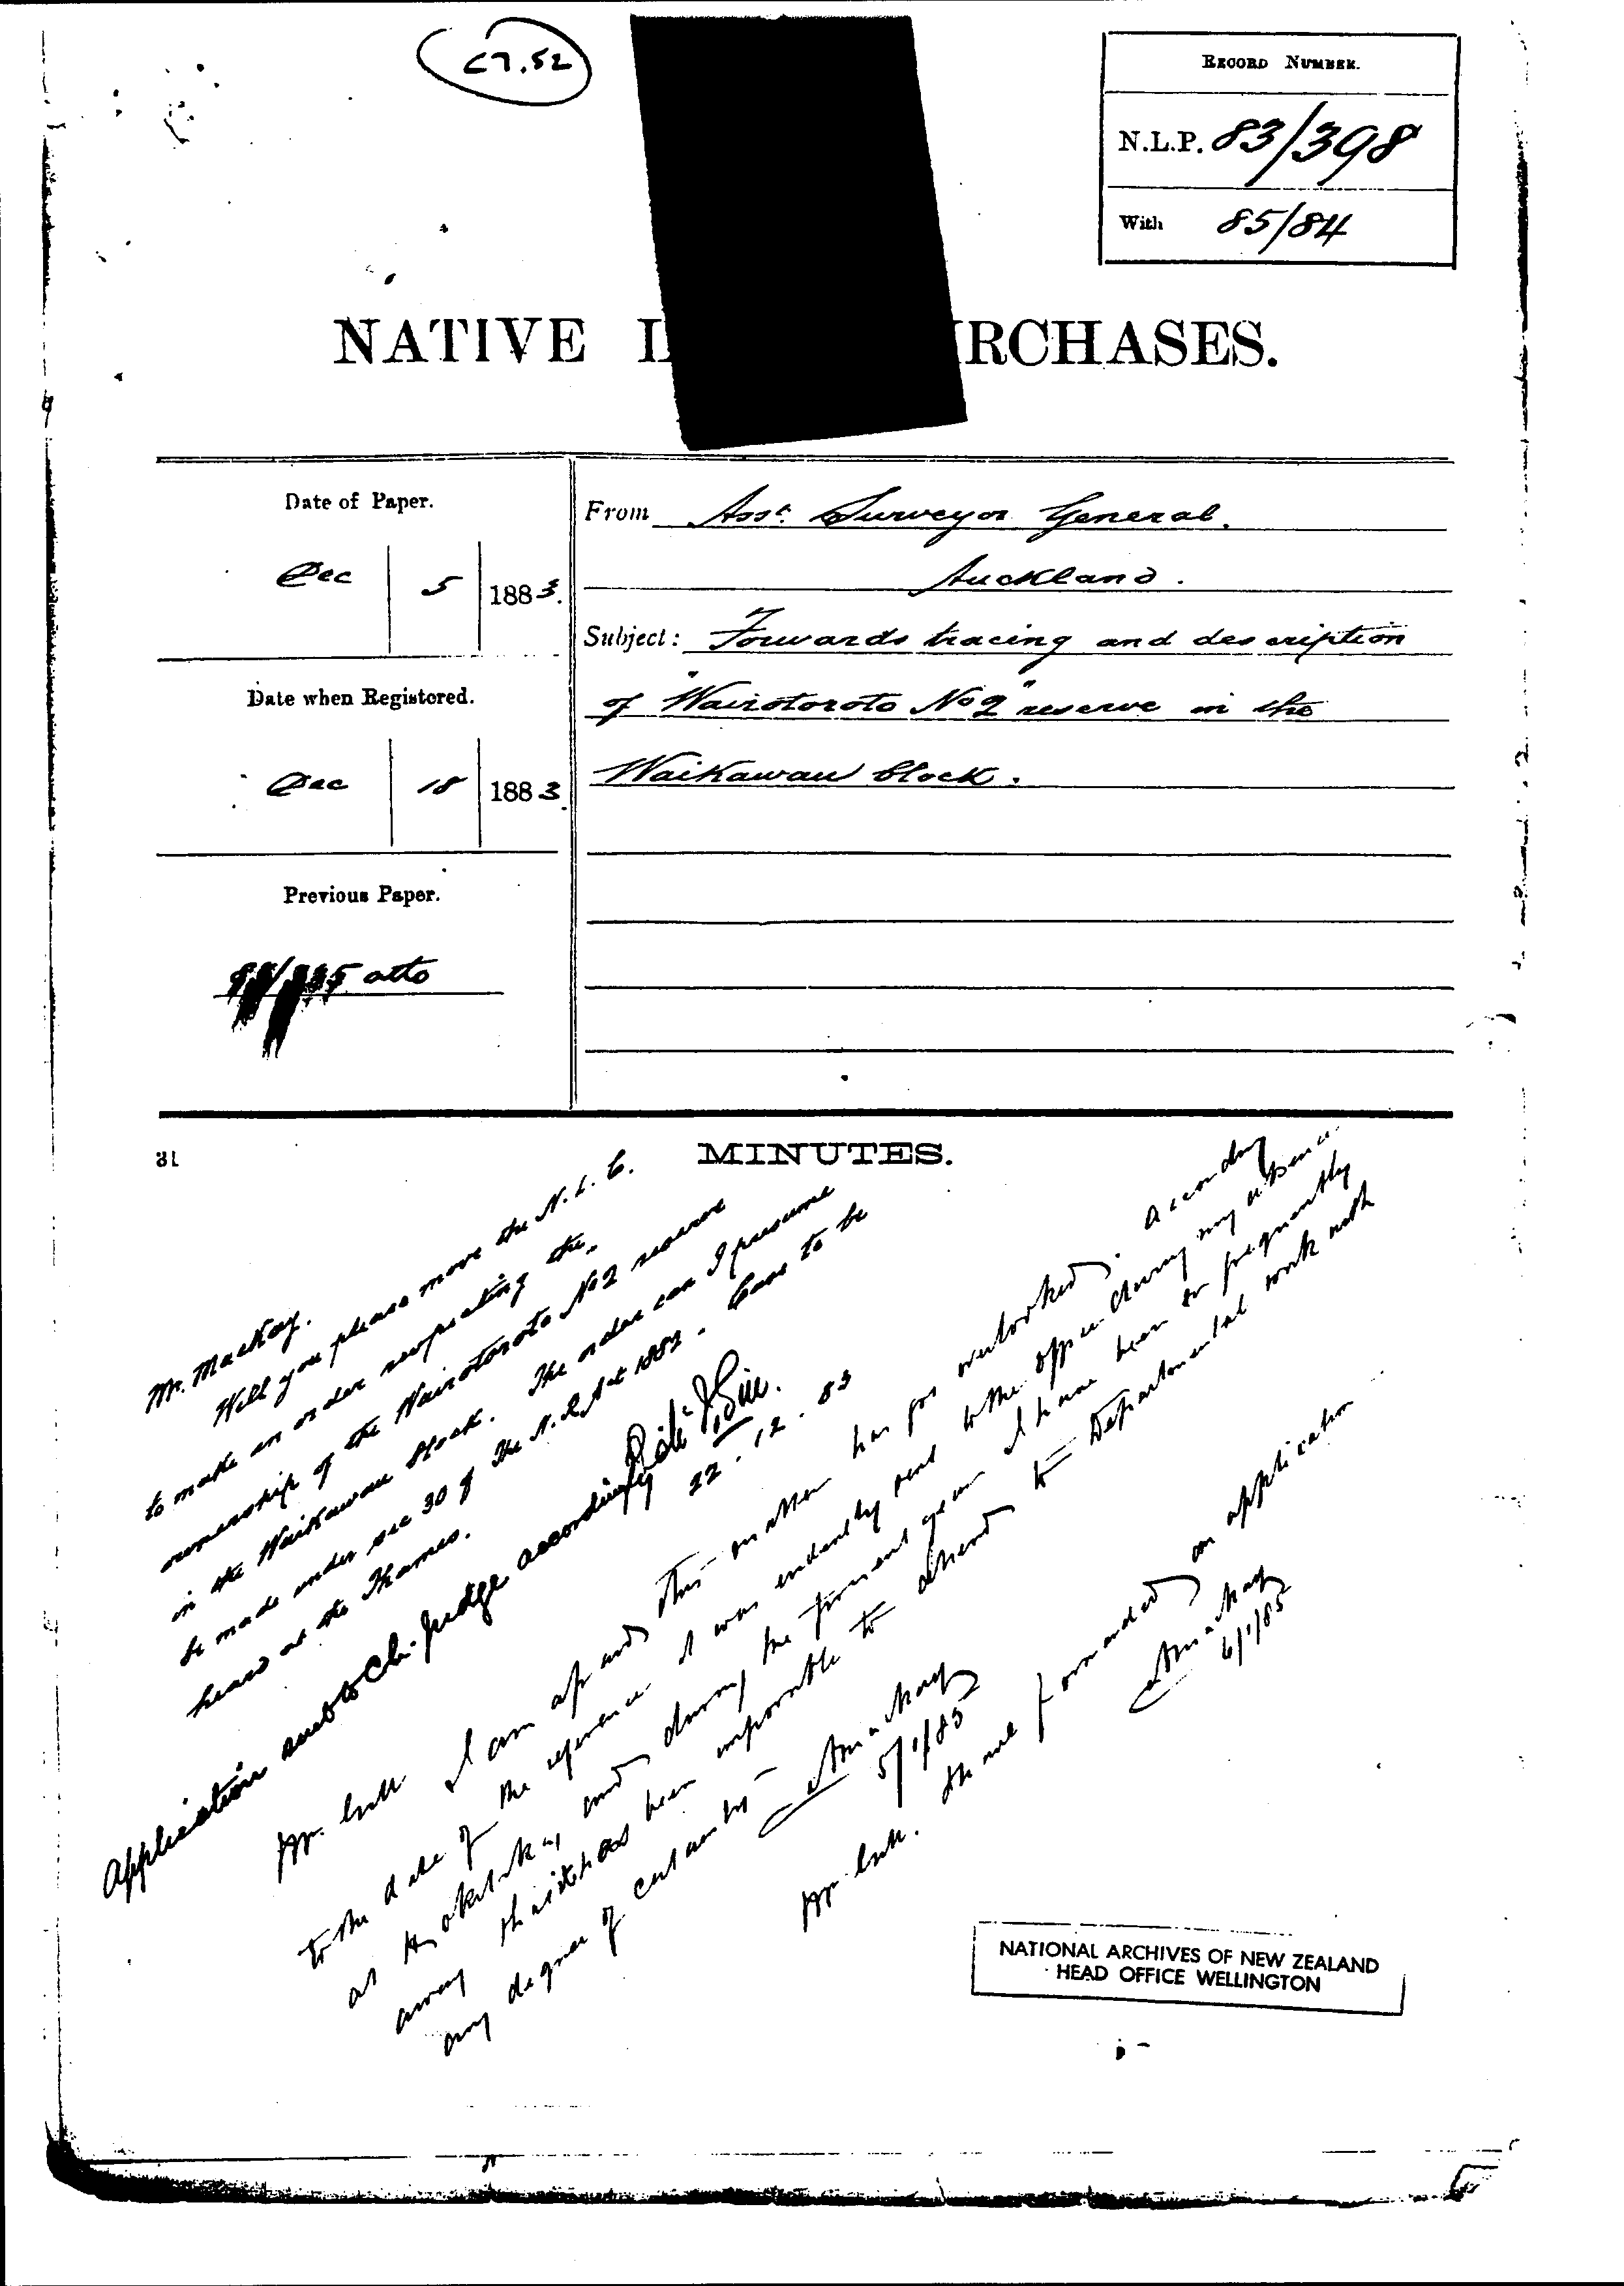 C7.52
RECORD NUMBER.
N.L.P. 83/398
With 85/84
NATIVE L URCHASES.
Date of Paper.
Dec 5 1883.
Date when Registered.
Dec 18 1883.
Previous Paper.
atto
From Asst. Surveyor General.
Auckland.
Subject: Forwards tracing and description
of "Wairotoroto No 2" reserve in the
Waikawau block.
31
MINUTES.
Mr. Mackay.
Will you please move the N.L.C.
to make an order respecting the
ownership of the Wairotoroto No 2 reserve
in the Waikawau Block. The order can I presume
be made under sec 30 of The N.R. Act 1882. Case to be
heard at the Thames.
22.12.83
Application sent to Ch: Judge accordingly
Mr. Gill I am afraid this matter has got overlooked. According
to the date of the reference it was evidently sent to the office during my absence
at Hokitika, and during the present year I have been so frequently
away that it has been impossible to attend to Departmental work with
any degree of certainty
5/1/85
Mr. Gill.
I have forwarded an application
6/1/85
NATIONAL ARCHIVES OF NEW ZEALAND
HEAD OFFICE WELLINGTON